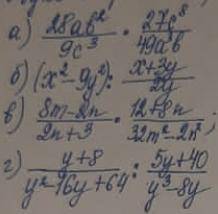 а) 28ab²/9c³ · 27c⁸/49a³b
б) (x²-9y²) : x+3y/2y
в) 8m-2n/2n+3 · 12+8n/32m²-2n²;
г) y+8/y²-16y+64 : 5y+40/y³-8y